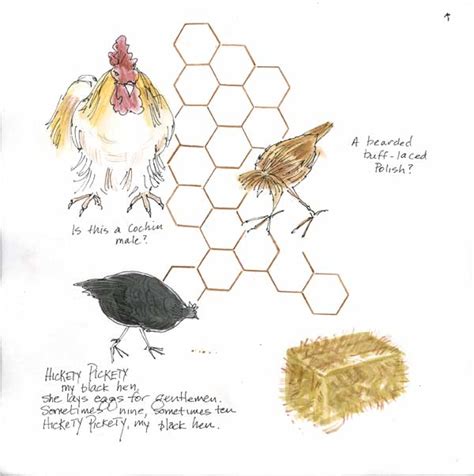 A bearded
buff-laced
Polish?
Is this a Cochin
male?
HICKETY PICKETY
my black hen,
she lays eggs for gentlemen.
Sometimes nine, sometimes ten
HICKETY PICKETY, my black hen.